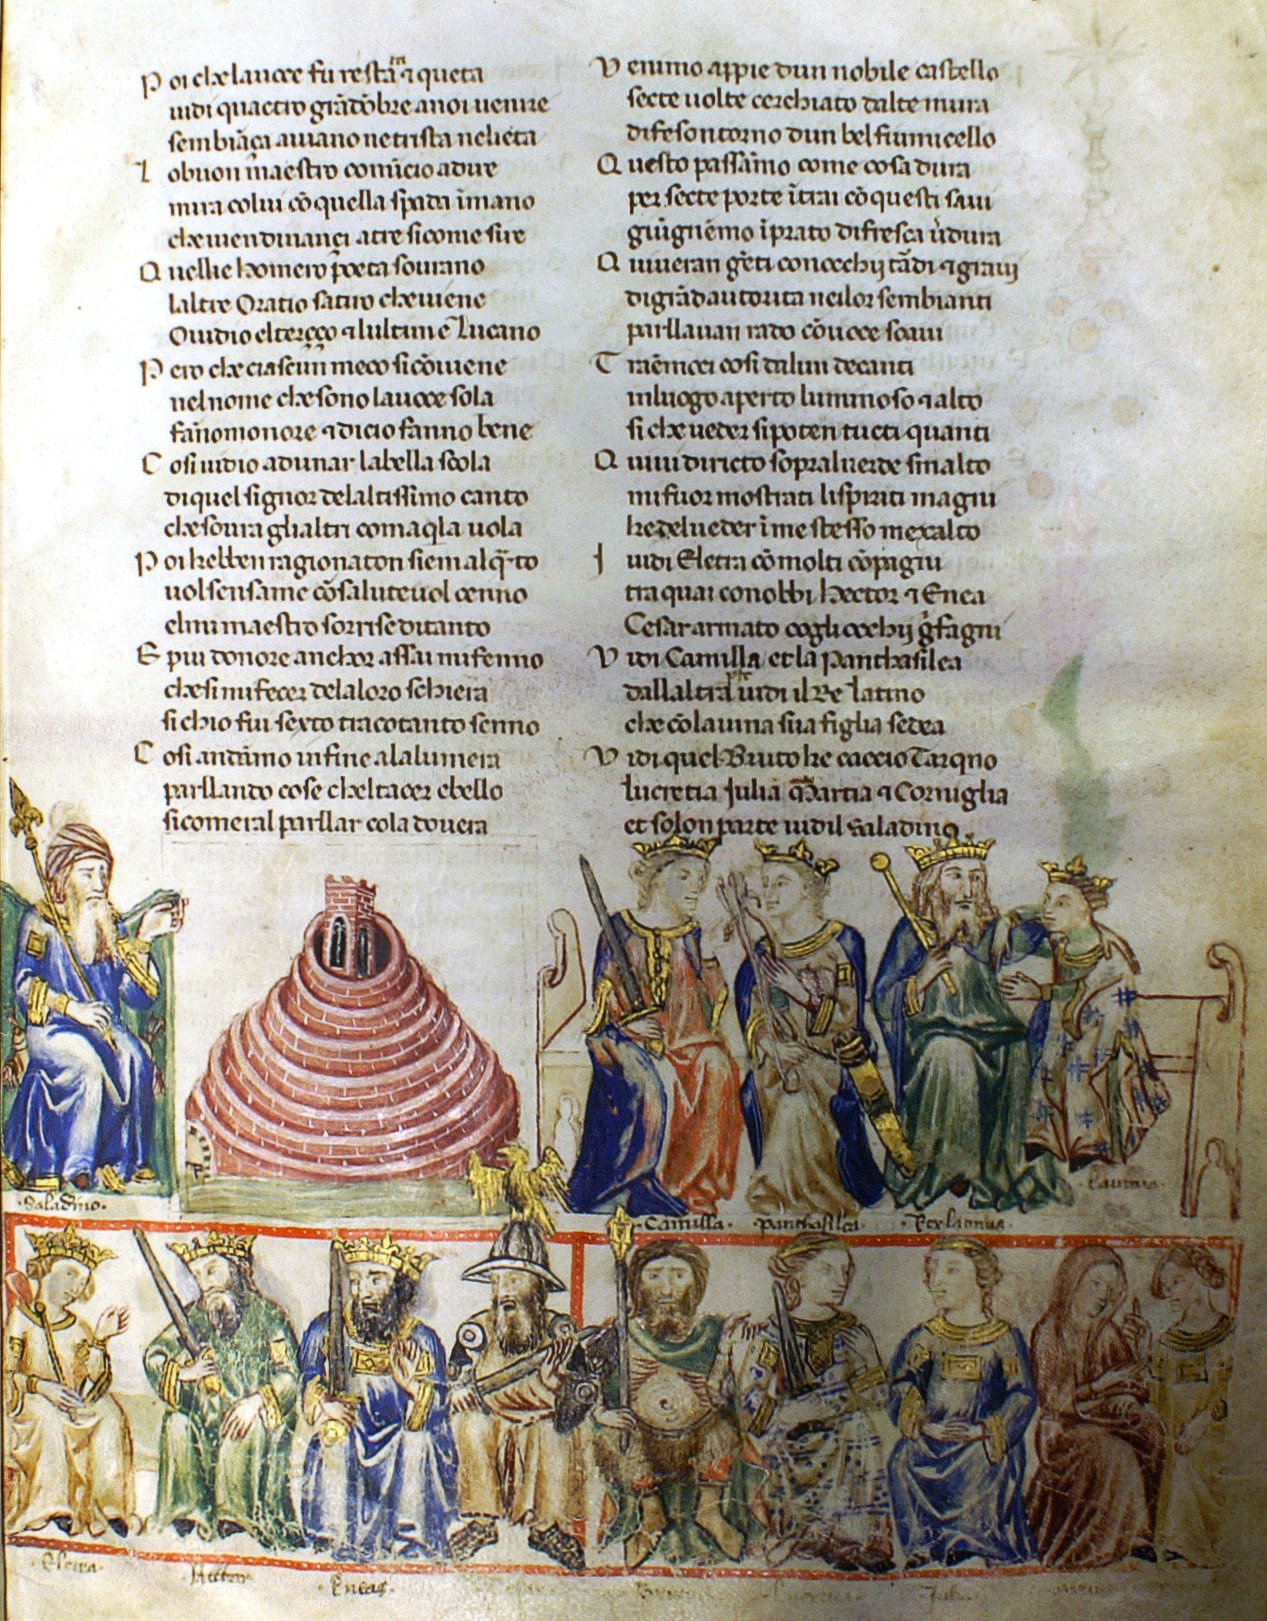 Poi che lauoce fu restata ⁊ queta
uidi quactro grādōbre anoi uenire
sembiāça auiano netrista nelieta
Lo buon maestro comīcio adire
mira colui cō quella spada īmano
che uien dinançi atre sicome sire
Quelli e homero poeta sourano
laltre Oratio satiro che uiene
Ouidio elterço ⁊ lultim e Lucano
Pero che ciascun meco si cōuiene
nel nome che sono lauoce sola
fānomonore ⁊ dicio fanno bene
Cosi uidio adunar labella scola
di quel signor delaltissimo canto
che soura ghaltri comaqla uola
Poi hebben ragionaton siem alq̄nto
uolsensame cōsaluteuol cenno
elmi maestro sorrise ditanto
E piu donore anchor assai mi fenno
chesi mi fecer delaloro schiera
si chio fui sexto tracotanto senno
Cosi andāmo infine alalumera
parllando cose cheltacer ebello
sicomeral parllar cola douera
Venimo appie dun nobile castello
secte uolte cerchiato dalte mura
difesontorno dun bel fiumicello
Questo passāmo come cosa dura
per secte porte ītrai cō questi saui
giūgnēmo īprato di fresca ūdura
Quiueran gēti conocchij tādi ⁊ graui
digrādautorita neilor sembianti
parllauan rado cōuoce soaui
Traēmoci cosi dalun decanti
inluogo aperto luminoso ⁊ alto
si che ueder si poten tucti quanti
Quiui diricto sopraluerde smalto
mi fuor mostrati li spiriti magni
he del ueder īme stesso mexalto
I uidi Eletra cō molti cōpagni
tra quai conobbi Hector ⁊ Enea
Cesar armato cogli occhij gfagni
Vidi Camilla et la Panthasilea
dallaltra pte uidi il Re Latino
che cōlauina sua figlia sedea
Vidi quel Bruto he caccio Tarqno
Lucretia Julia Martia ⁊ Corniglia
et solon parte uidil saladino
·Saladino·
·Camilla· ·Panthasilea· ·Rex latinus· ·Lauinia·
·Eletra· ·Hector· ·Eneas·